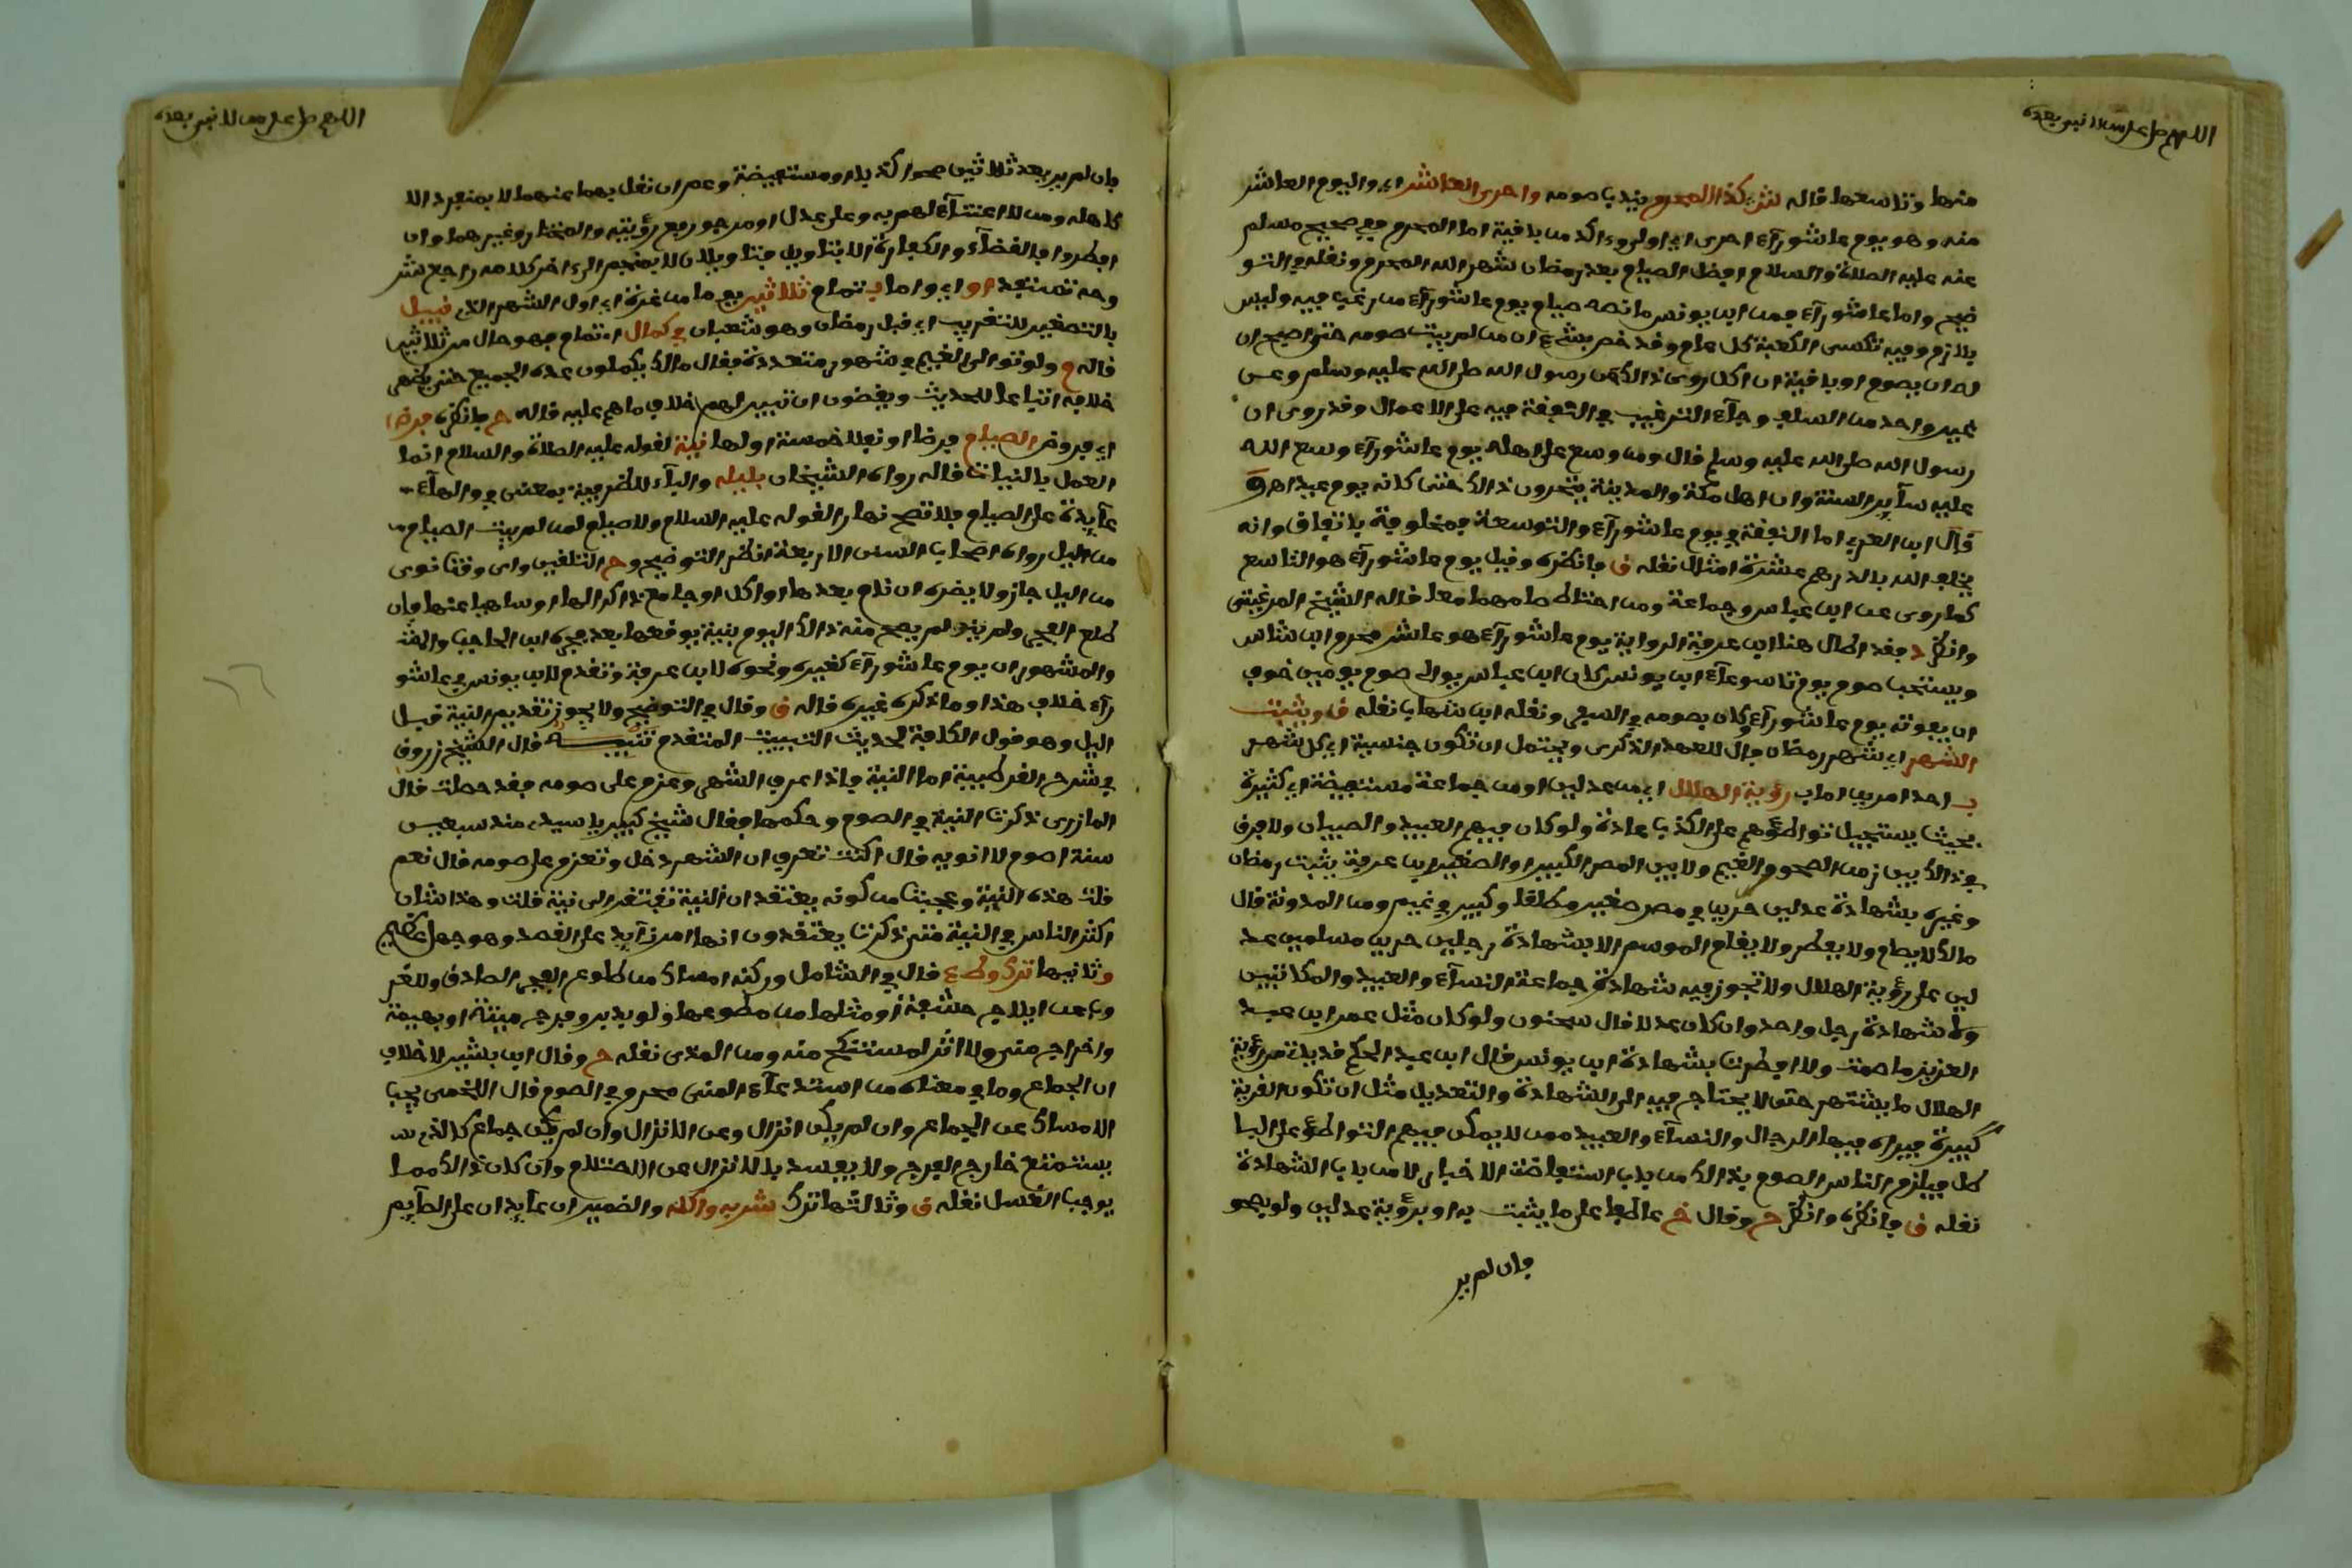 اللهم صل على من لا نبي بعده
منها وتاسعها قاله ش كذا المحرم يندب صومه واحرى العاشر اي واليوم العاشر
منه وهو يوم عاشورآء احرى اي اولى وءاكد من باقيه اما المحرم ففي صحيح مسلم
عنه عليه الصلاة والسلام افضل الصيام بعد رمضان شهر الله المحرم ونقله في التو
ضيح واما عاشورآء فمن ابن يونس ما نصه صيام يوم عاشورآء مرغب فيه وليس
بلازم وفيه تكسى الكعبة كل عام وقد خص بشيء ان من لم يبيت صومه حتى اصبح ان
له ان يصوم او باقيه ان اكل روى ذالك عن رسول الله صلى الله عليه وسلم وعن
غير واحد من السلف وجآء الترغيب في النفقة فيه على الاعمال وقد روى ان
رسول الله صلى الله عليه وسلم قال ومن وسع على اهله يوم عاشورآء وسع الله
عليه سآئر السنة وان اهل مكة والمدينة يتحرون ذالك حتى كانه يوم عيد اهـ ق
قال ابن العربي اما النفقة في يوم عاشورآء والتوسعة فمخلوفة باتفاق وانه
يخلف الله بالدرهم عشرة امثال نقله ق فانظره وقيل يوم عاشورآء هو التاسع
كما روى عن ابن عباس وجماعة ومن احتاط صامهما معا قاله الشيخ المرغيتي
وانظر فقد اطال هنا ابن عرفة الرواية يوم عاشورآء هو عاشر محرم ابن شاس
ويستحب صوم يوم تاسوعآء ابن يونس كان ابن عباس يوالي صوم يومين خوف
ان يفوته يوم عاشورآء وكان يصومه في السفر ونقله ابن شهاب نقله ق ويثبت
الشهر اي شهر رمضان فال للعهد الذكري ويحتمل ان تكون جنسية اي كل شهر
بـ احد امرين اما بـ رؤية الهلال اي من عدلين او من جماعة مستفيضة اي كثيرة
بحيث يستحيل تواطؤهم على الكذب عادة ولو كان فيهم العبيد والصبيان ولا فرق
في ذالك بين زمن الصحو والغيم ولا بين المصر الكبير او الصغير ابن عرفة يثبت رمضان
وغيره بشهادة عدلين حرين في مصر صغير مطلقا وكبير في غيم ومن المدونة قال
مالك لا يصام ولا يفطر ولا يقام الموسم الا بشهادة رجلين حرين مسلمين عد
لين على رؤية الهلال ولا تجوز فيه شهادة جماعة النسآء والعبيد والمكاتبين
ولا شهادة رجل واحد وان كان عدلا قال سحنون ولو كان مثل عمر ابن عبد
العزيز ما صمت ولا افطرت بشهادة ابن يونس قال ابن عبد الحكم قد يات من رؤية
الهلال ما يشتهر حتى لا يحتاج فيه الى الشهادة والتعديل مثل ان تكون القرية
كبيرة فيراه فيها الرجال والنسآء والعبيد ممن لا يمكن فيهم التواطؤ على البا
طل فيلزم الناس الصوم بذالك من باب استفاضة الاخبار لا من باب الشهادة
نقله ق فانظره وانظر ح وقال خ عاطفا على ما يثبت به او برؤية عدلين ولو بصحو
فان لم ير
اللهم صل على من لا نبي بعده
فان لم ير بعد ثلاثين صحوا كذبا او مستفيضة وعم ان نقل بهما عنهما لا بمنفرد الا
كاهله ومن لا اعتنآء لهم به وعلى عدل او مرجو رفع رؤيته والمختار وغيرهما وان
افطروا فالقضآء والكفارة الا بتاويل فتاويلان لا بمنجم الى ءاخر كلامه راجع ش
وحه تستفد او اي واما بـ تمام ثلاثين يوما من غرة اي اول الشهر الذي قبيل
بالتصغير للتقريب اي قبل رمضان وهو شعبان في كمال اي تمام فهو حال من ثلاثين
قاله م ولو توالى الغيم في شهور متعددة فقال مالك يكملون عدة الجميع حتى يظهر
خلافه اتباعا للحديث ويقضون ان تبين لهم خلاف ما هم عليه قاله ح فانظره فرض
اي فروض الصيام فرضا او نفلا خمسة اولها نية لقوله عليه الصلاة والسلام انما
العمل بالنيات قاله رواه الشيخان بليله والبآء للظرفية بمعنى في والهآء
عآئدة على الصيام فلا تصح نهارا لقوله عليه السلام ولا صيام لمن لم يبيت الصيام
من اليل رواه اصحاب السنن الاربعة انظر التوضيح وح التلقين واي وقت نوى
من اليل جاز ولا يضره ان نام بعدها او اكل او جامع ذاكرا لها او ساهيا عنها فان
طلع الفجر ولم ينو لم يصح منه ذالك اليوم بنية يوقعها بعد فجره ابن الحاجب
والمشهور ان يوم عاشورآء كغيره ونحوه لابن عرفة وتقدم لابن يونس في عاشو
رآء خلاف هذا وما ذكره غيره قاله ق وقال في التوضيح ولا يجوز تقديم النية قبل
اليل وهو قول الكافة لحديث التبييت المتقدم تنبيه قال الشيخ زروق
في شرح القرطبية اما النية فاذا عرف الشهر وعزم على صومه فقد حصلت قال
المازري ذكرت النية في الصوم وحكمها فقال شيخ كبير يا سيدي منذ سبعين
سنة اصوم لا انويه قال اكنت تعرف ان الشهر دخل وتعزم على صومه قال نعم
قلت هذه النية وعجبت من كونه يعتقد ان النية تفتقر الى نية قلت وهذا شان
اكثر الناس في النية متى ذكرت يعتقدون انها امر زآئد على القصد وهو جهل عظيم
وثانيها ترك وطء قال في الشامل وركنه امساك من طلوع الفجر الصادق وللغر
وب عن ايلاج حشفة او مثلها من مقطوعها ولو بدبر وفرج ميتة او بهيمة
واخراج مني ولا اثر لمستنكح منه ومن المذي نقله ح وقال ابن بشير لا خلاف
ان الجماع وما في معناه من استدعآء المني محرم في الصوم قال اللخمي يجب
الامساك عن الجماع وان لم يكن انزال وعن الانزال وان لم يكن جماع كالذي
يستمتع خارج الفرج ولا يفسد بالانزال عن الاحتلام وان كان ذالك مما
يوجب الغسل نقله ق وثالثها ترك شربه واكله والضميران عآئدان على الصآئم